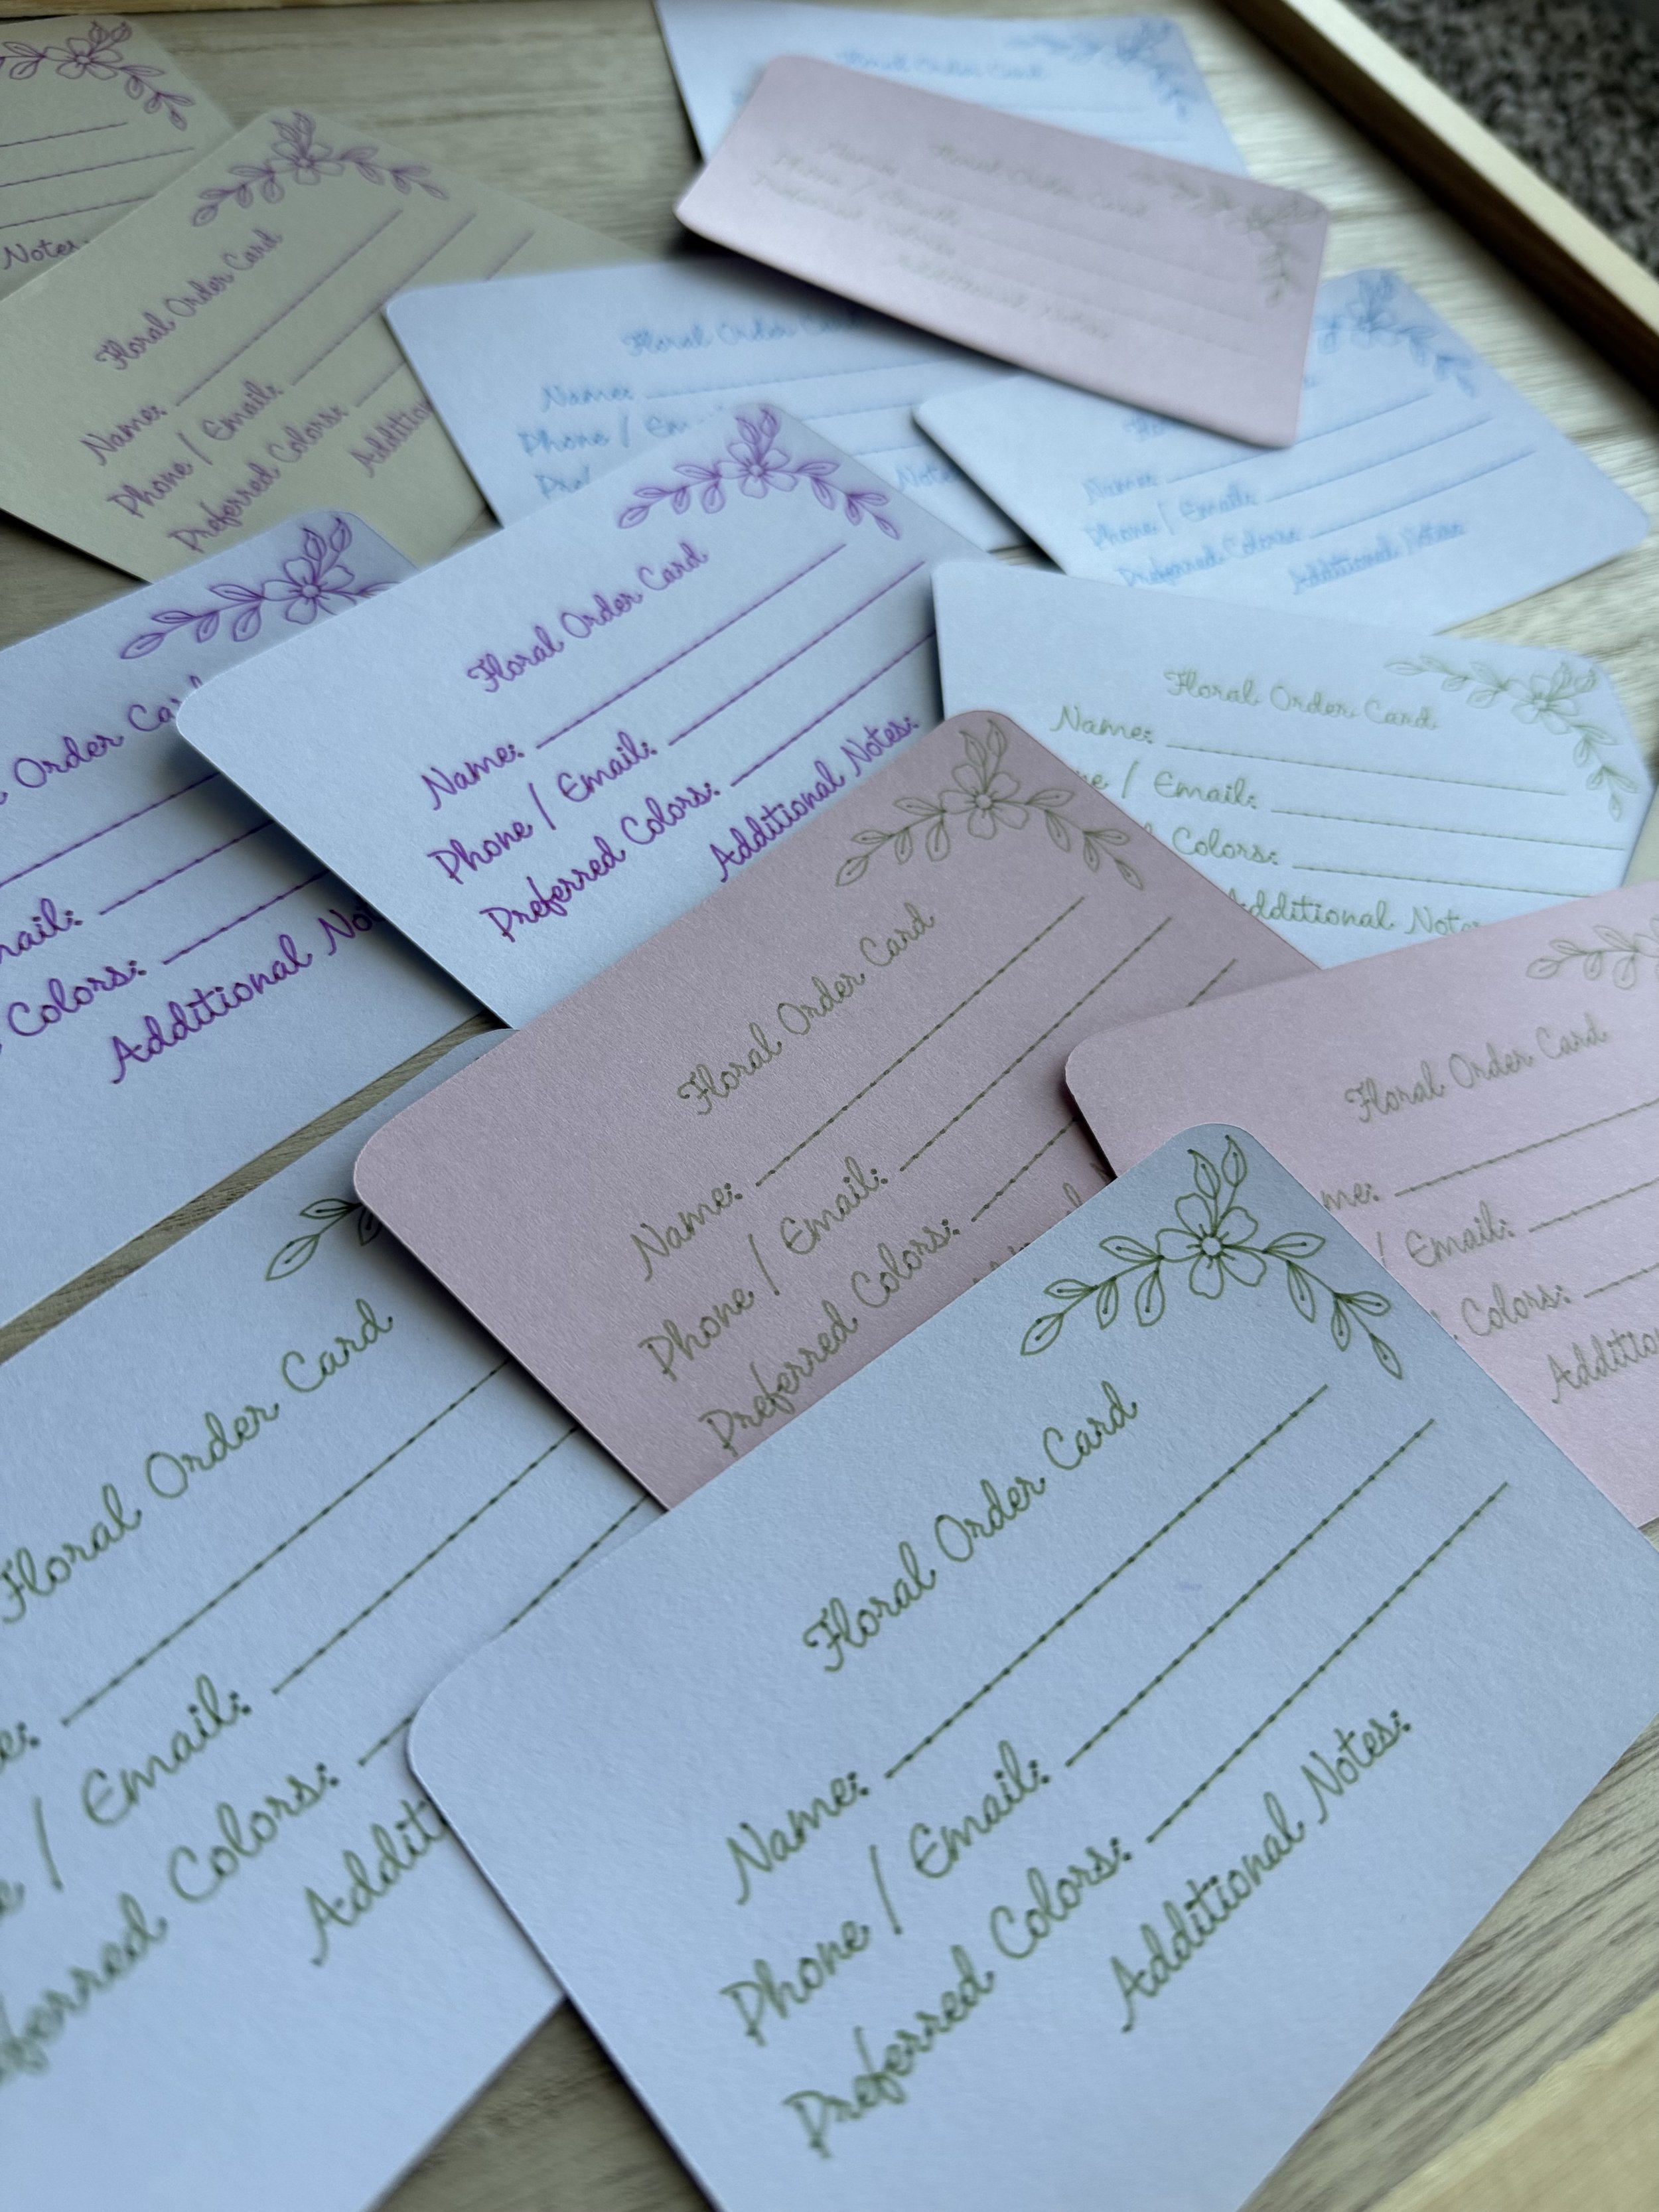 Notes:
Floral Order Card
Name:
Phone / Email:
Preferred Colors:
Additio
Floral Order Card
Floral Order Card
Name:
Phone / Em
Pre
Notes
Name:
Phone / Email:
Preferred Colors:
Additional Notes:
Order Card
mail:
Colors:
Additional No
Floral Order Card
Name:
Phone / Email:
Preferred Colors:
Additional Notes:
Floral Order Card
Name:
ne / Email:
Colors:
Additional Notes
Floral Order Card
Name:
Phone / Email:
Preferred Colors:
Floral Order Card
me:
/ Email:
Colors:
Additio
Floral Order Card
e:
e / Email:
eferred Colors:
Addit
Floral Order Card
Name:
Phone / Email:
Preferred Colors:
Additional Notes: